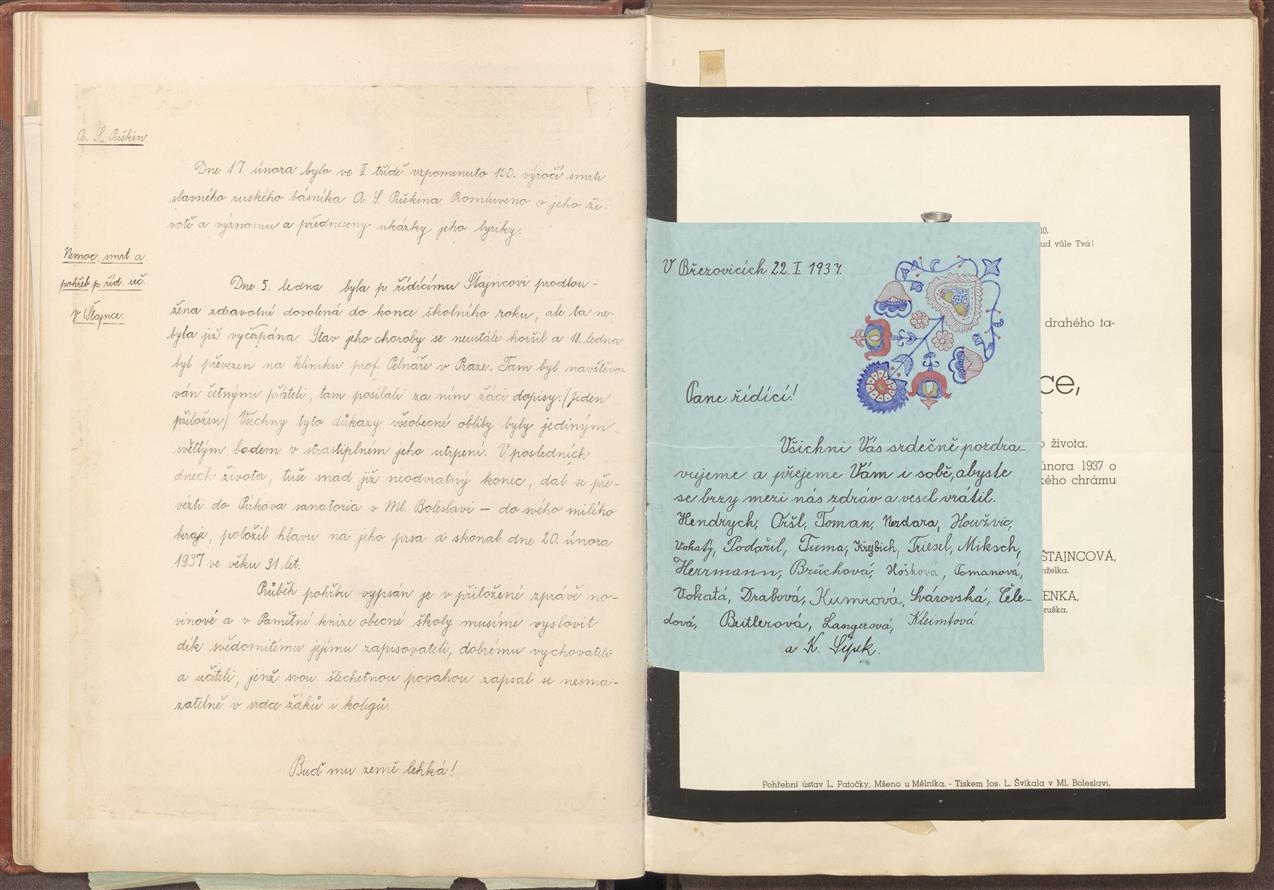 A. S. Puškin.
Dne 17. února bylo ve II. třídě vzpomenuto 100. výročí smrti
slavného ruského básníka A. S. Puškina. Promluveno o jeho ži-
votě a významu a předneseny ukázky jeho lyriky.
Nemoc, smrt a
pohřeb p. říd. uč.
V. Štajnce.
Dne 5. ledna byla p. řídícímu Štajncovi prodlou-
žena zdravotní dovolená do konce školního roku, ale ta ne-
byla již vyčerpána. Stav jeho choroby se neustále horšil a 18. ledna
byl převezen na kliniku prof. Pelnáře v Praze. Tam byl navštěvo-
ván četnými přáteli, tam posílali za ním žáci dopisy. (Jeden
přiložen). Všechny tyto důkazy všeobecné obliby byly jediným
světlým bodem v strastiplném jeho utrpení. V posledních
dnech života, tuše snad již neodvratný konec, dal se pře-
vézti do Pírkova sanatoria v Ml. Boleslavi – do svého milého
kraje, položil hlavu na jeho prsa a skonal dne 20. února
1937 ve věku 31 let.
Průběh pohřbu vypsán je v přiložené zprávě no-
vinové a v Pamětní knize obecné školy musíme vyslovit
dík svědomitému jejímu zapisovateli, dobrému vychovateli
a učiteli, jenž svou šlechetnou povahou zapsal se nesma-
zatelně v srdce žáků i kolegů.
Buď mu země lehká!
V Březovicích 22. I 1937.
Pane řídící!
Všichni Vás srdečně pozdra-
vujeme a přejeme Vám i sobě, abyste
se brzy mezi nás zdráv a vesel vrátil.
Hendrych, Oršl, Toman, Nerdara, Houžvic,
Vokatý, Podařil, Tuma, Krejbich, Triesel, Miksch,
Herrmann, Brůchová, Hošková, Tomanová,
Vokatá, Drabová, Kumrová, Svárovská, Čele-
dová, Butlerová, Langerová, Kleimtova
a K.
10.
ud vůle Tvá!
drahého ta-
ce,
o života.
února 1937 o
kého chrámu
ŠTAJNCOVÁ,
nželka.
ENKA,
ruška.
Pohřební ústav L. Patočky, Mšeno u Mělníka. - Tiskem Jos. L. Švíkala v Ml. Boleslavi.